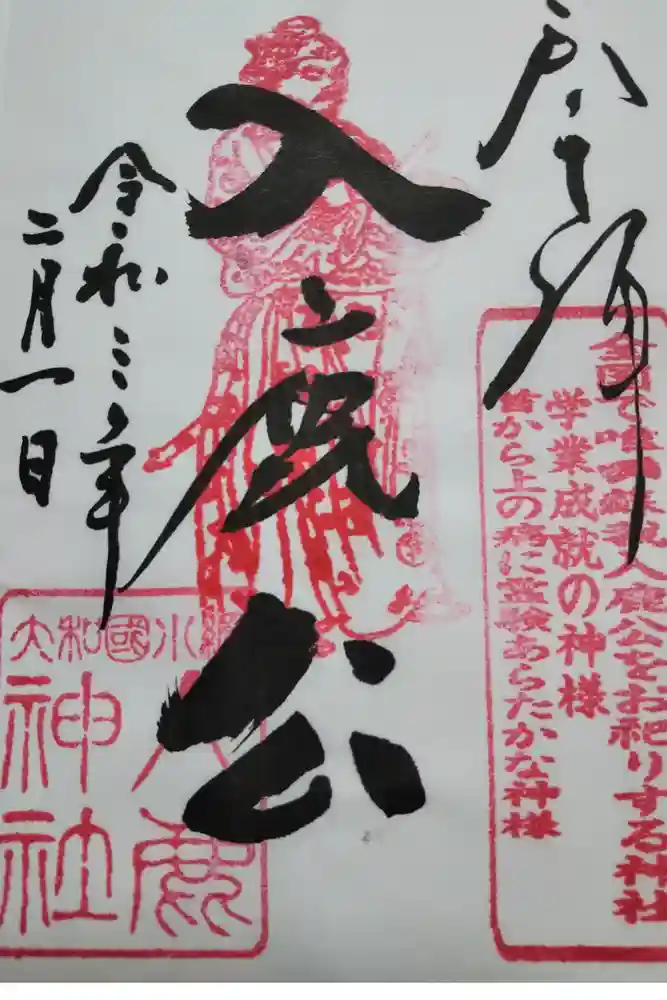 奉拝
全国で唯一蘇我入鹿公をお祀りする神社
学業成就の神様
首から上の病に霊験あらたかな神様
入鹿公
大和國小綱
入鹿
神社
令和三年
二月一日